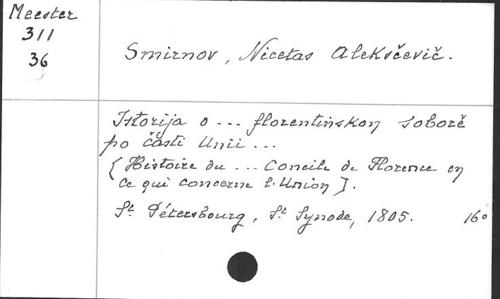 Meester
311
36
Smirnov, Nicetas Aleksčevič.
Istorija o ... florentinskon soborě
po části Unii ...
[Histoire du ... Concile de Florence en
ce qui concerne l'Union].
St. Pétersbourg, St. Synode, 1805. 16°